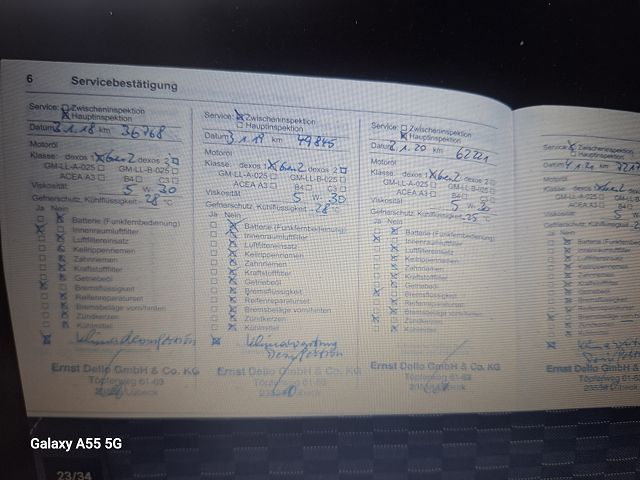 6 Servicebestätigung
Service: Zwischeninspektion
Hauptinspektion
Datum 3.1.18 km 36768
Motoröl
Klasse: dexos 1 Gen2 dexos 2
GM-LL-A-025 GM-LL-B-025
ACEA A3 B4 C3
Viskosität 5 W- 30
Gefrierschutz, Kühlflüssigkeit -28 °C
Ja Nein
Batterie (Funkfernbedienung)
Innenraumluftfilter
Luftfiltereinsatz
Keilrippenriemen
Zahnriemen
Kraftstofffilter
Getriebeöl
Bremsflüssigkeit
Reifenreparaturset
Bremsbeläge vorn/hinten
Zündkerzen
Kühlmittel
Klimadesinfektion
Ernst Dello GmbH & Co. KG
Töpferweg 61-63
Lübeck
Service: Zwischeninspektion
Hauptinspektion
Datum 3.1.19 km 49845
Motoröl
Klasse: dexos 1 Gen2 dexos 2
GM-LL-A-025 GM-LL-B-025
ACEA A3 B4 C3
Viskosität 5 W- 30
Gefrierschutz, Kühlflüssigkeit -28 °C
Ja Nein
Batterie (Funkfernbedienung)
Innenraumluftfilter
Luftfiltereinsatz
Keilrippenriemen
Zahnriemen
Kraftstofffilter
Getriebeöl
Bremsflüssigkeit
Reifenreparaturset
Bremsbeläge vorn/hinten
Zündkerzen
Kühlmittel
Klimawartung
Desinfektion
Ernst Dello GmbH & Co. KG
Töpferweg 61-63
Lübeck
Service: Zwischeninspektion
Hauptinspektion
Datum 1.20 km 62221
Motoröl
Klasse: dexos 1 Gen2 dexos 2
GM-LL-A-025 GM-LL-B-025
ACEA A3 B4 C3
Viskosität 5 W- 30
Gefrierschutz, Kühlflüssigkeit -25 °C
Ja Nein
Batterie (Funkfernbedienung)
Innenraumluftfilter
Luftfiltereinsatz
Keilrippenriemen
Zahnriemen
Kraftstofffilter
Getriebeöl
Bremsflüssigkeit
Reifenreparaturset
Bremsbeläge vorn/hinten
Zündkerzen
Kühlmittel
Ernst Dello GmbH & Co. KG
Töpferweg 61-63
Lübeck
Service: Zwischeninspektion
Hauptinspektion
Datum 4.1.21 km
Motoröl
Klasse: dexos 1 Gen2
GM-LL-A-025 GM-LL-B
ACEA A3 B4
Viskosität 5
Gefrierschutz, Kühlflüssigkeit
Ja Nein
Batterie (Funkfernbedien
Innenraumluftfilter
Luftfiltereinsatz
Keilrippenriemen
Zahnriemen
Kraftstofffilter
Getriebeöl
Bremsflüssigkeit
Reifenreparaturset
Bremsbeläge vorn/hinten
Zündkerzen
Kühlmittel
Ernst Dello GmbH
Töpferweg 61
Galaxy A55 5G
23/34